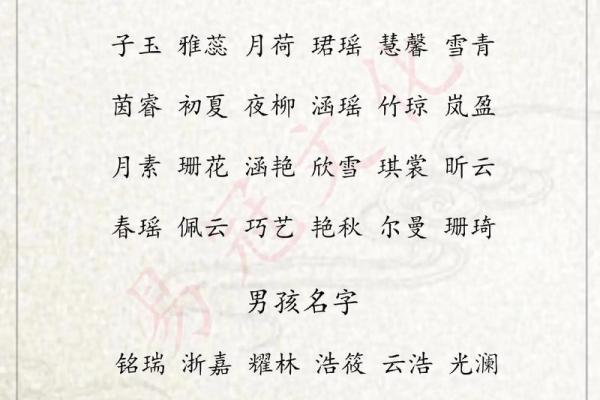 子玉 雅蕊 月荷 珺瑶 慧馨 雪青
茵睿 初夏 夜柳 涵瑶 竹琼 岚盈
月素 珊花 涵艳 欣雪 琪裳 昕云
春瑶 佩云 巧艺 艳秋 尔曼 珊琦
男孩名字
铭瑞 浙嘉 耀林 浩筱 云浩 光澜
易冠文化